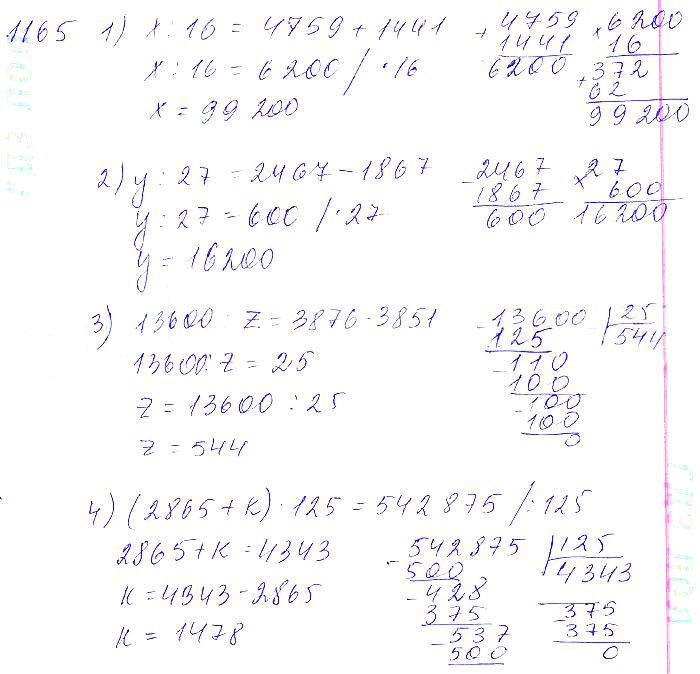 1165 1) x : 16 = 4759 + 1441
x : 16 = 6200 / · 16
x = 99 200
+ 4759
1441
6200
× 6200
16
+ 372
62
99 200
2) y : 27 = 2467 - 1867
y : 27 = 600 / · 27
y = 16200
- 2467
1867
600
× 27
600
16200
3) 13600 : z = 3876 - 3851
13600 : z = 25
z = 13600 : 25
z = 544
- 13600 | 25
125 544
- 110
100
- 100
100
0
4) (2865 + k) · 125 = 542 875 / : 125
2865 + k = 4343
k = 4343 - 2865
k = 1478
- 542875 | 125
500 4343
- 428
375
- 537
500
- 375
375
0